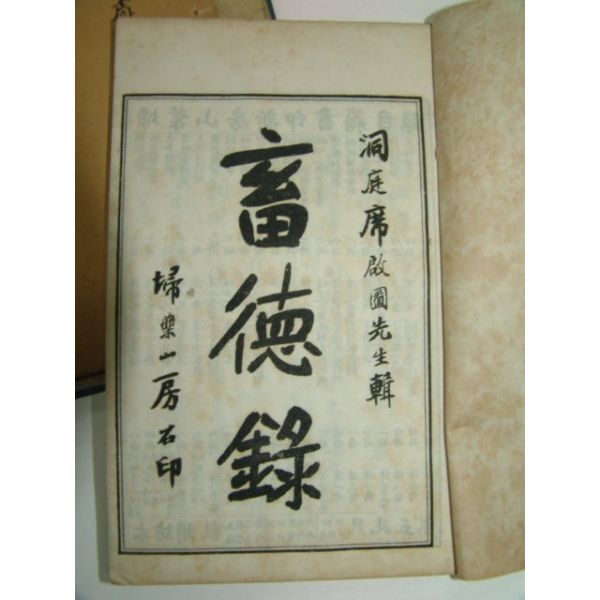 洞庭席啟圖先生輯
畜徳錄
埽葉山房石印